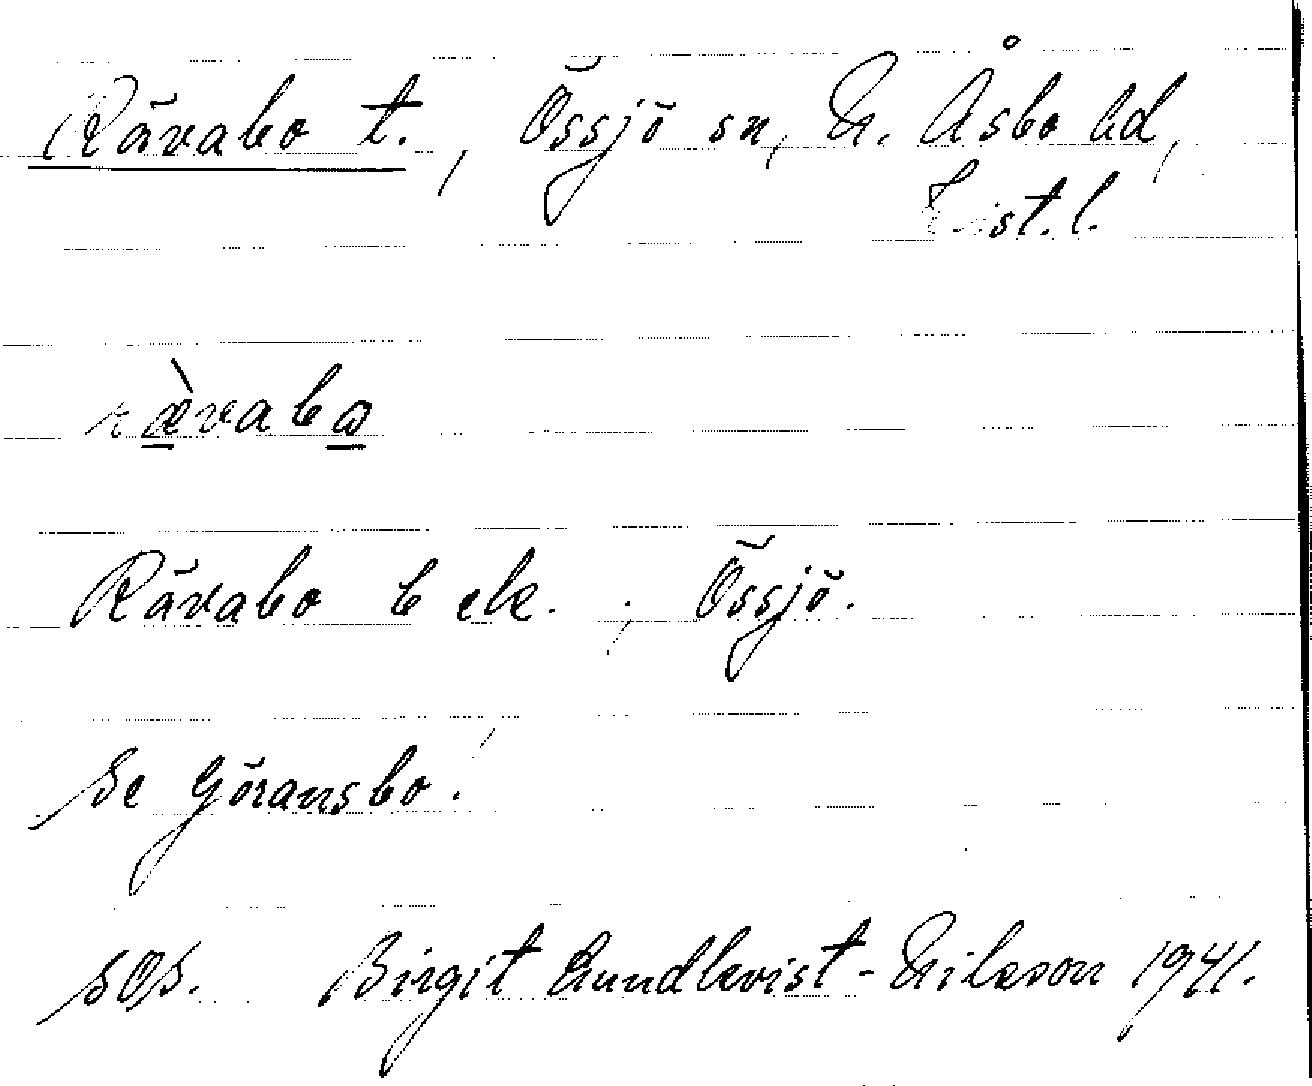 Rävabo t., Össjö sn, N. Åsbo hd,
Krist.l.
ræ̀vabɷ
Rävabo b ek., Össjö.
Se Göransbo!
SOS. Birgit Lundkvist-Nilsson 1941.